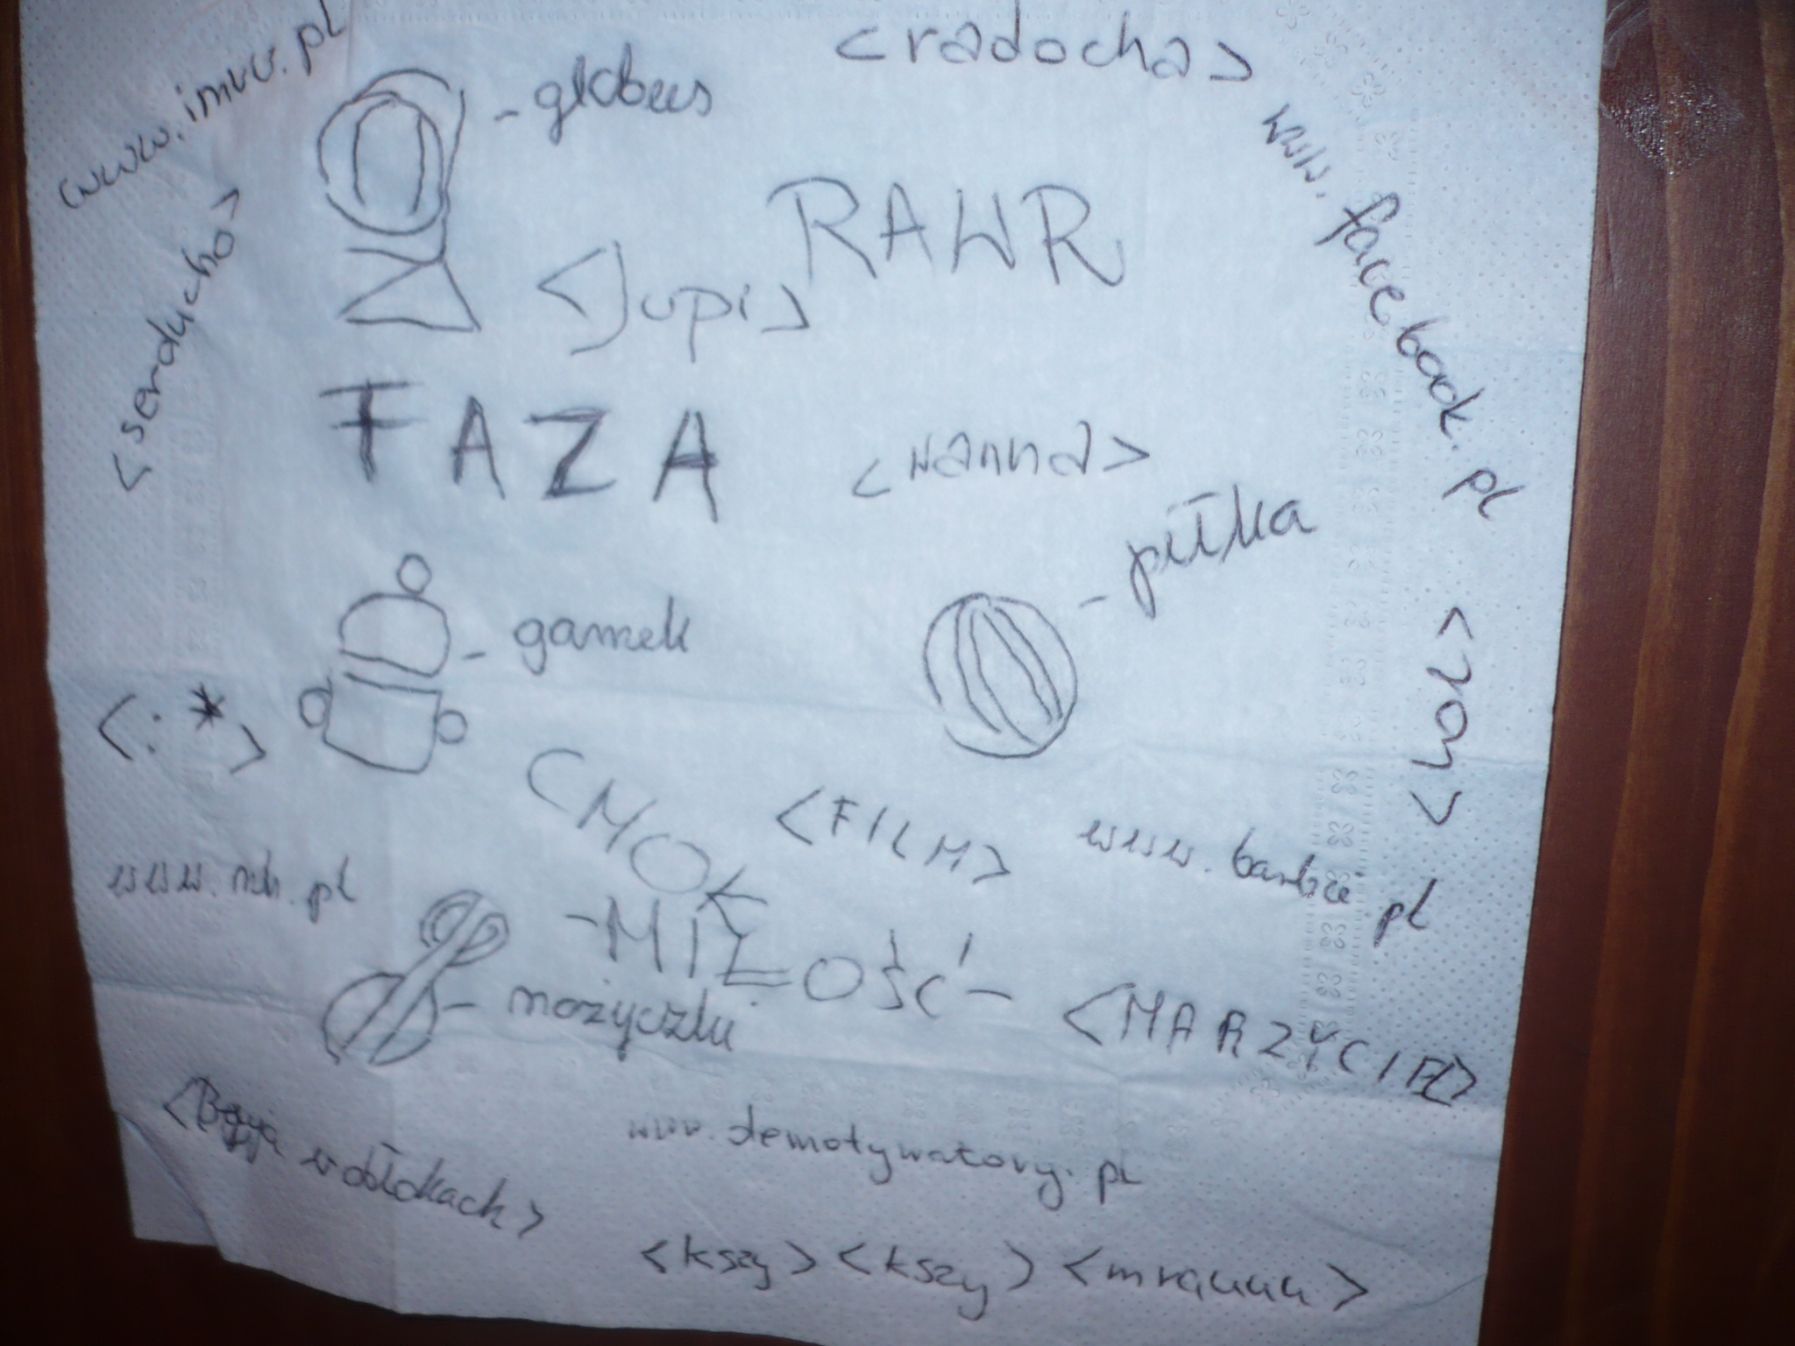 www.imvu.pl
<radocha>
- globus
www.facebook.pl
<serducho>
RAWR
<Jupi>
FAZA
<wanna>
- piłka
- garnek
<:*>
CMOK
<FILM>
www.barbie.pl
www.nk.pl
-MIŁOŚĆ-
- nożyczki
<MARZYCIEL>
<Buja w obłokach>
www.demotywatory.pl
<kszy> <kszy> <mrauuu>